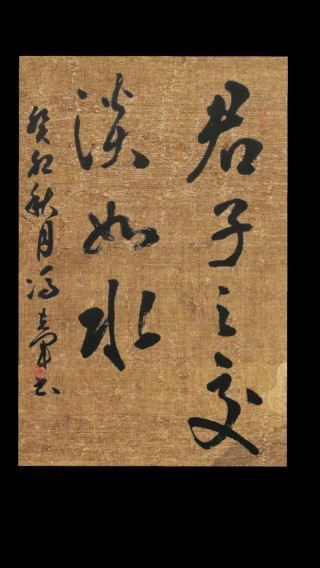 君子之交
淡如水
癸卯秋月冯
书